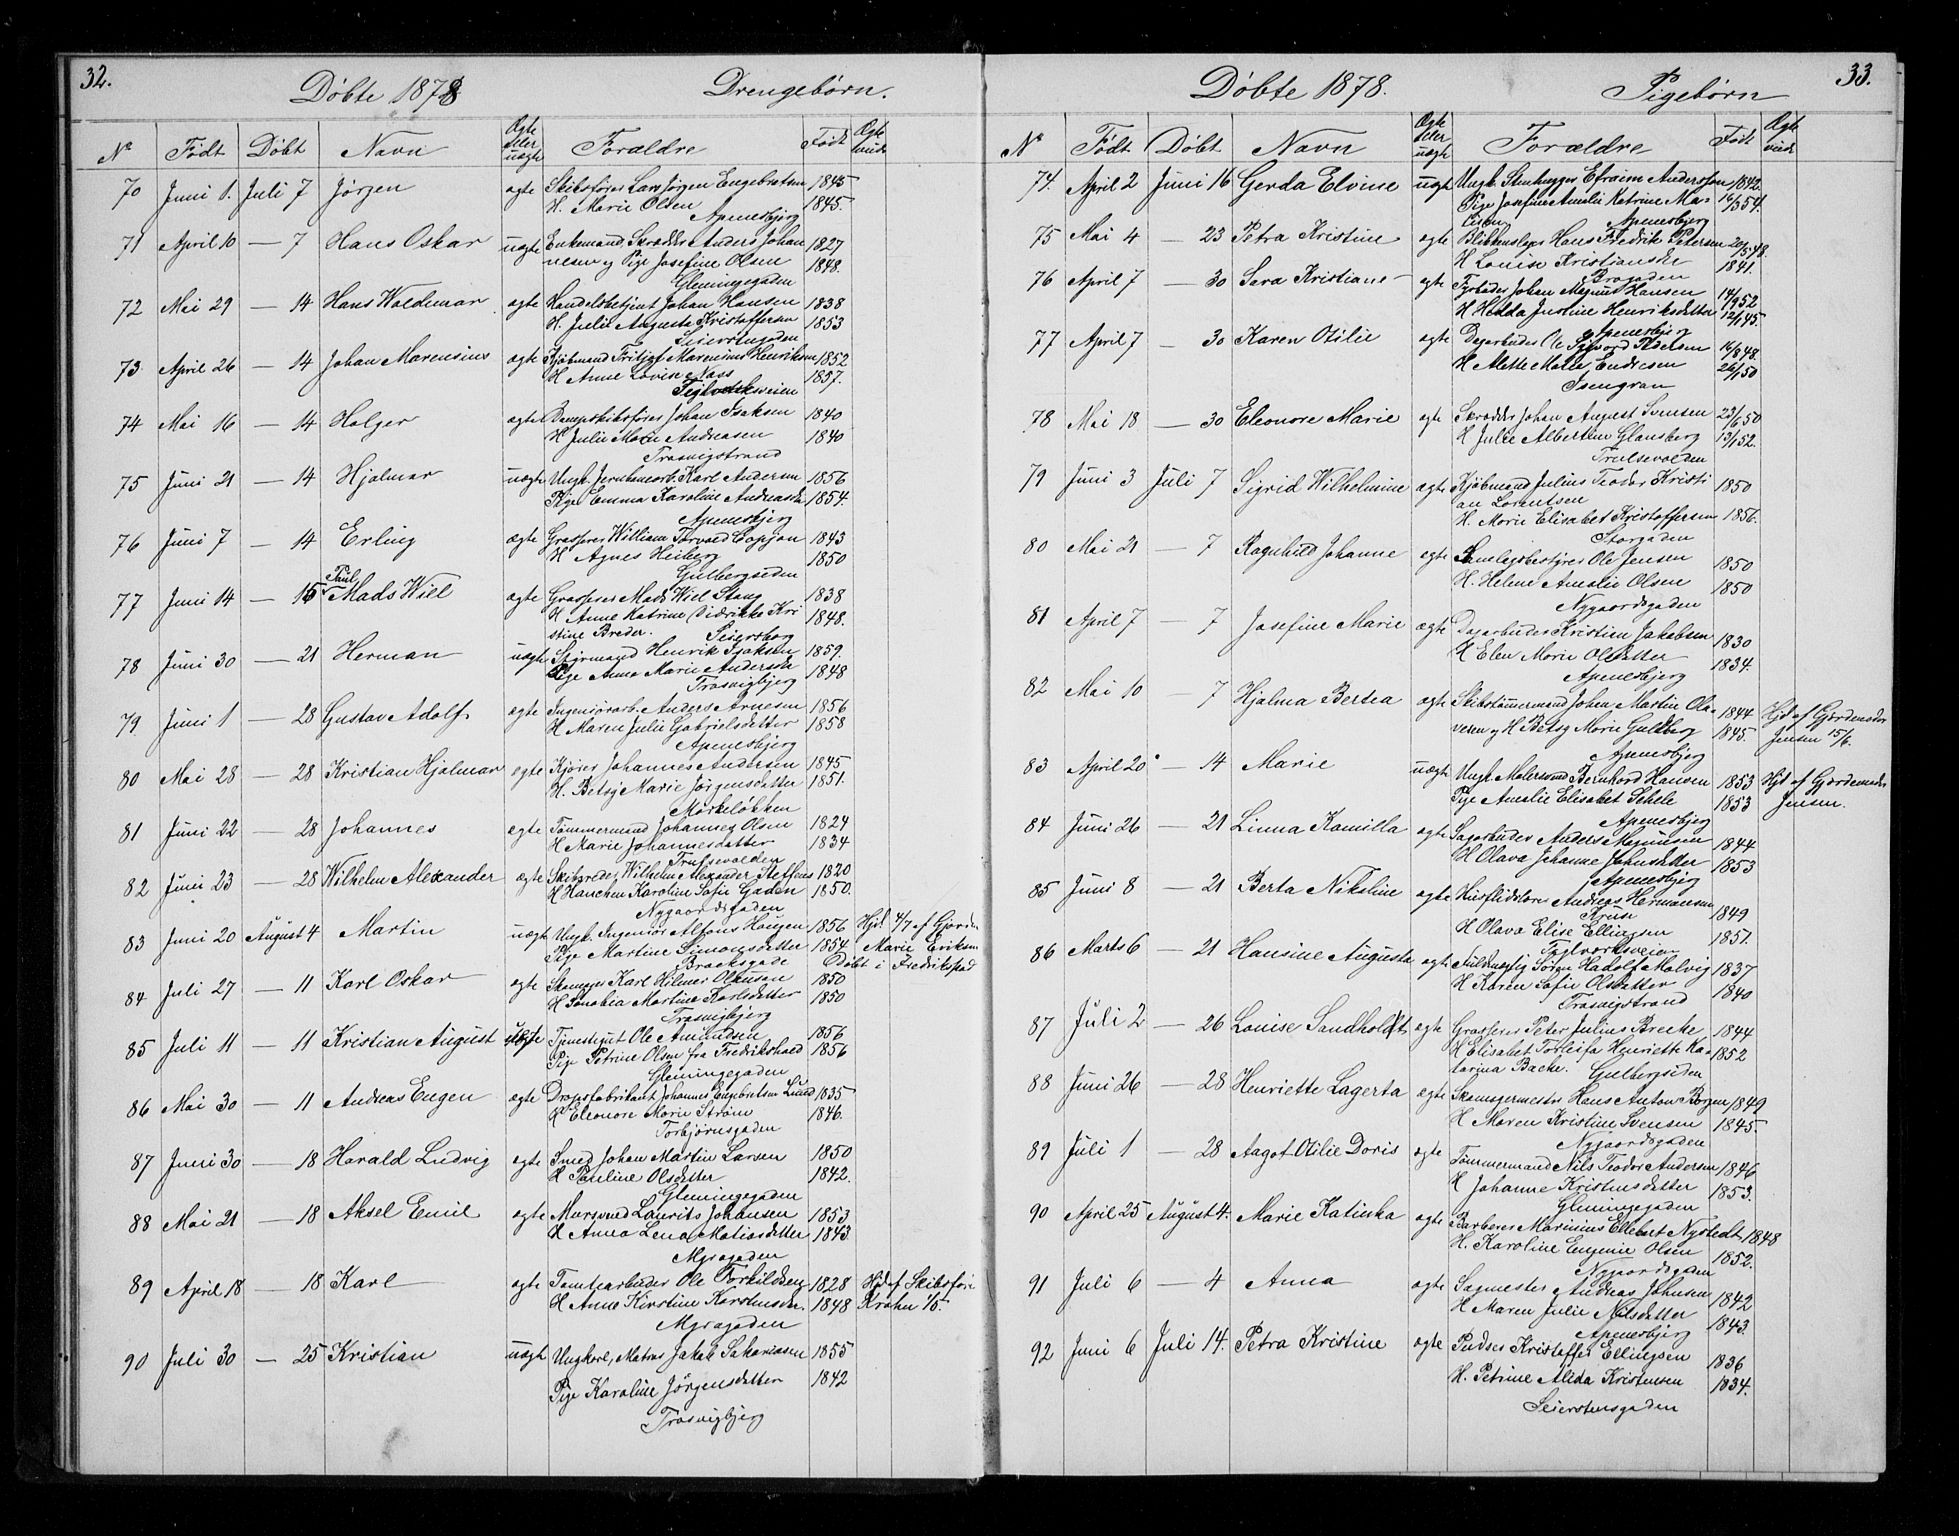 32.
Døbte 1878
Drengebørn.
Nº Født Døbt Navn Ægte eller uægte Forældre Født
70 Juni 1. Juli 7 Jørgen ægte Skibsfører Lars Jørgen Engebretsen 1845
H. Marie Olsen 1845
Apenesbjerg
71 April 10 — 7 Hans Oskar uægte Enkemand, Skrædder Anders Johan 1827
nesen og Pige Josefine Olsen 1848.
Glemmingegaden
72 Mai 29 — 14 Hans Waldemar ægte Handelsbetjent Johan Hansen 1838
H. Julie Auguste Kristoffersen 1853
Seierstengaden
73 April 26 — 14 Johan Marensius ægte Kjøbmand Fritjof Marensius Henriksen 1852
H Anne Lovise Næss 1857.
Teglverksveien
74 Mai 16 — 14 Holger ægte Dampskibsfører Johan Isaksen 1840
H Julie Marie Andreasen 1840
Trosvigstrand
75 Juni 21 — 14 Hjalmar uægte Ungk. Jernbanearb. Karl Andersen 1856
Pige Emma Karoline Andreasdr 1854.
Apenesbjerg
76 Juni 7 — 14 Erling ægte Grosserer William Torvald Coopjon 1843
H Agnes Heiberg 1850
Gulbergsiden
77 Juni 14 — 15 Paul Mads Wiel ægte Grosserer Mads Wiel Stang 1838
H Anne Katrine Didrikke Kri 1848.
stine Breder. Seiersborg
78 Juni 30 — 21 Herman uægte Styrmand Henrik Isaksen 1859.
Pige Anna Marie Andersdr 1848
Trosvigbjerg
79 Juni 1 — 28 Gustav Adolf ægte Ingeniørarb. Anders Arnesen 1856
H Maren Julie Gabrielsdatter 1858
Apenesbjerg
80 Mai 28 — 28 Kristian Hjalmar ægte Kjører Johannes Andersen 1845
H. Betsy Marie Jørgensdatter 1851.
Mørkeløkken
81 Juni 22 — 28 Johannes ægte Tømmermand Johannes Olsen 1824
H Marie Johannesdatter 1834
Trulsevolden
82 Juni 23 — 28 Wilhelm Alexander ægte Skibsreder Wilhelm Alexander Steffens 1820
H Hanchen Karoline Sofie Gaden 1850.
Nygaardsgaden
83 Juni 20 August 4 Martin uægte Ungk. Ingeniør Alfons Haugen 1856 Hjd. 4/7 af Gjordm.
Pige Martine Simonsdatter 1854. Marie Eriksen
Brochsgade Døbt i Fredrikstad
84 Juli 27 — 11 Karl Oskar ægte Skomager Karl Hilmer Olausen 1850
H Zenobia Martine Karlsdatter 1850
Trosvigbjerg
85 Juli 11 — 11 Kristian August uægte Tjenestegut Ole Amundsen 1856
Pige Petrine Olsen fra Fredrikshald 1856
Glemmingegaden
86 Mai 30 — 11 Andreas Eugen ægte Dropsfabrikant Johannes Engebretsen Lund 1835
H Eleonore Marie Strøm 1846.
Torbjørnsgaden
87 Juni 30 — 18 Harald Ludvig ægte Smed Johan Martin Larsen 1850
H Pauline Olsdatter 1842.
Glemmingegaden
88 Mai 21 — 18 Aksel Emil ægte Mursvend Laurits Johansen 1853
H Anna Lena Matiasdatter 1843
Myragaden
89 April 18 — 18 Karl ægte Tomtearbeider Ole Torkildsen 1828 Hjd af Skibsfører
H Anne Kirstine Karstensdr. 1848 Krohn 1/5.
Myragaden
90 Juli 30 — 25 Kristian uægte Ungkarl, Matros Jakob Sakariasen 1855
Pige Karoline Jørgensdatter 1842
Trosvigbjerg
33.
Døbte 1878.
Pigebørn
Nº Født Døbt Navn Ægte eller uægte Forældre Født
74. April 2 Juni 16 Gerda Elvine uægte Ungk. Stenhugger Efraim Andersson 1842.
Pige Josefine Amalie Katrine Ma- 16/3 54.
Apenesbjerg
75 Mai 4 — 23 Petra Kristine ægte Blikkenslager Hans Fredrik Petersen 20/5 48.
H Louise Kristiansdr 1841.
Brogaden
76 April 7 — 30 Sara Kristiane ægte Fyrbøder Johan Magnus Hansen 14/9 52
H Hedda Justine Henriksdatter 12/1 45.
Apenesbjerg
77 April 7 — 30 Karen Otilie ægte Dagarbeider Ole Sigvard Pedersen 16/8 48.
H Mette Maria Endresen 26/1 50
Isengran
78 Mai 18 — 30 Eleonore Marie ægte Skrædder Johan August Svensen 23/6 50
H Julie Albertine Glansberg 13/1 52.
Trulsevolden
79 Juni 3 Juli 7 Sigrid Wilhelmine ægte Kjøbmand Julius Teodor Kristi 1850
an Lorentsen
H. Marie Elisabet Kristoffersen 1856.
Storgaden
80 Mai 21 — 7 Ragnhild Johanne ægte Samlagsbestyrer Ole Jensen 1850
H. Helene Amalie Olsen 1850
Nygaardsgaden
81 April 7 — 7 Josefine Marie ægte Dagarbeider Kristian Jakobsen 1830
H Elen Marie Olsdatter 1834.
Apenesbjerg
82 Mai 10 — 7 Hjalma Bertea ægte Skibstømmermand Johan Martin Ola- 1844 Hjd af Gjordemoder
vesen og H Betsy Marie Guldberg 1845. Jensen 15/6.
Apenesbjerg
83 April 20 — 14 Marie uægte Ungk. Malersvend Bernhard Hansen 1853 Hjd af Gjordemoder
Pige Amalie Elisabet Schele 1853 Jensen.
Apenesbjerg
84 Juni 26 — 21 Linna Kamilla ægte Sagarbeider Anders Magnussen 1844
H Olava Johanne Johnsdatter 1853
Apenesbjerg
85 Juni 8 — 21 Berta Nikoline ægte Husflidslærer Andreas Hermansen 1849
Krus
H Olava Elise Ellingsen 1851.
Teglverksveien
86 Marts 6 — 21 Hansine Augusta ægte Søren Hadolf Malvig 1837
H Karen Sofie Olsdatter 1840
Trosvigstrand
87 Juli 2 — 26 Louise Sandholdt ægte Grosserer Peter Julius Brecke 1844
H Elisabet Torleifa Henriette Ka- 1852
tarina Backe. Gulbergsiden
88 Juni 26 — 28 Henriette Lagerta ægte Skomagermester Hans Anton Borgen 1849
H Maren Kristine Svensen 1845.
Nygaardsgaden
89 Juli 1 — 28 Aagot Otilie Doris ægte Tømmermand Nils Teodor Andersen 1846
H Johanne Kristensdatter 1853.
Glemmingegaden
90 April 25 August 4. Marie Katinka ægte Barberer Marinius Ellebæt Nystedt 1848
H. Karoline Eugenie Olsen 1852.
Nygaardsgaden
91 Juli 6 — 4 Anna ægte Sagmester Andreas Johnsen 1842
H Maren Julie Nilsdatter 1843.
Apenesbjerg
92 Juni 6 Juli 14. Petra Kristine ægte Pudser Kristoffer Ellingsen 1836
H. Petrine Alida Kristensen 1834.
Seierstensgaden